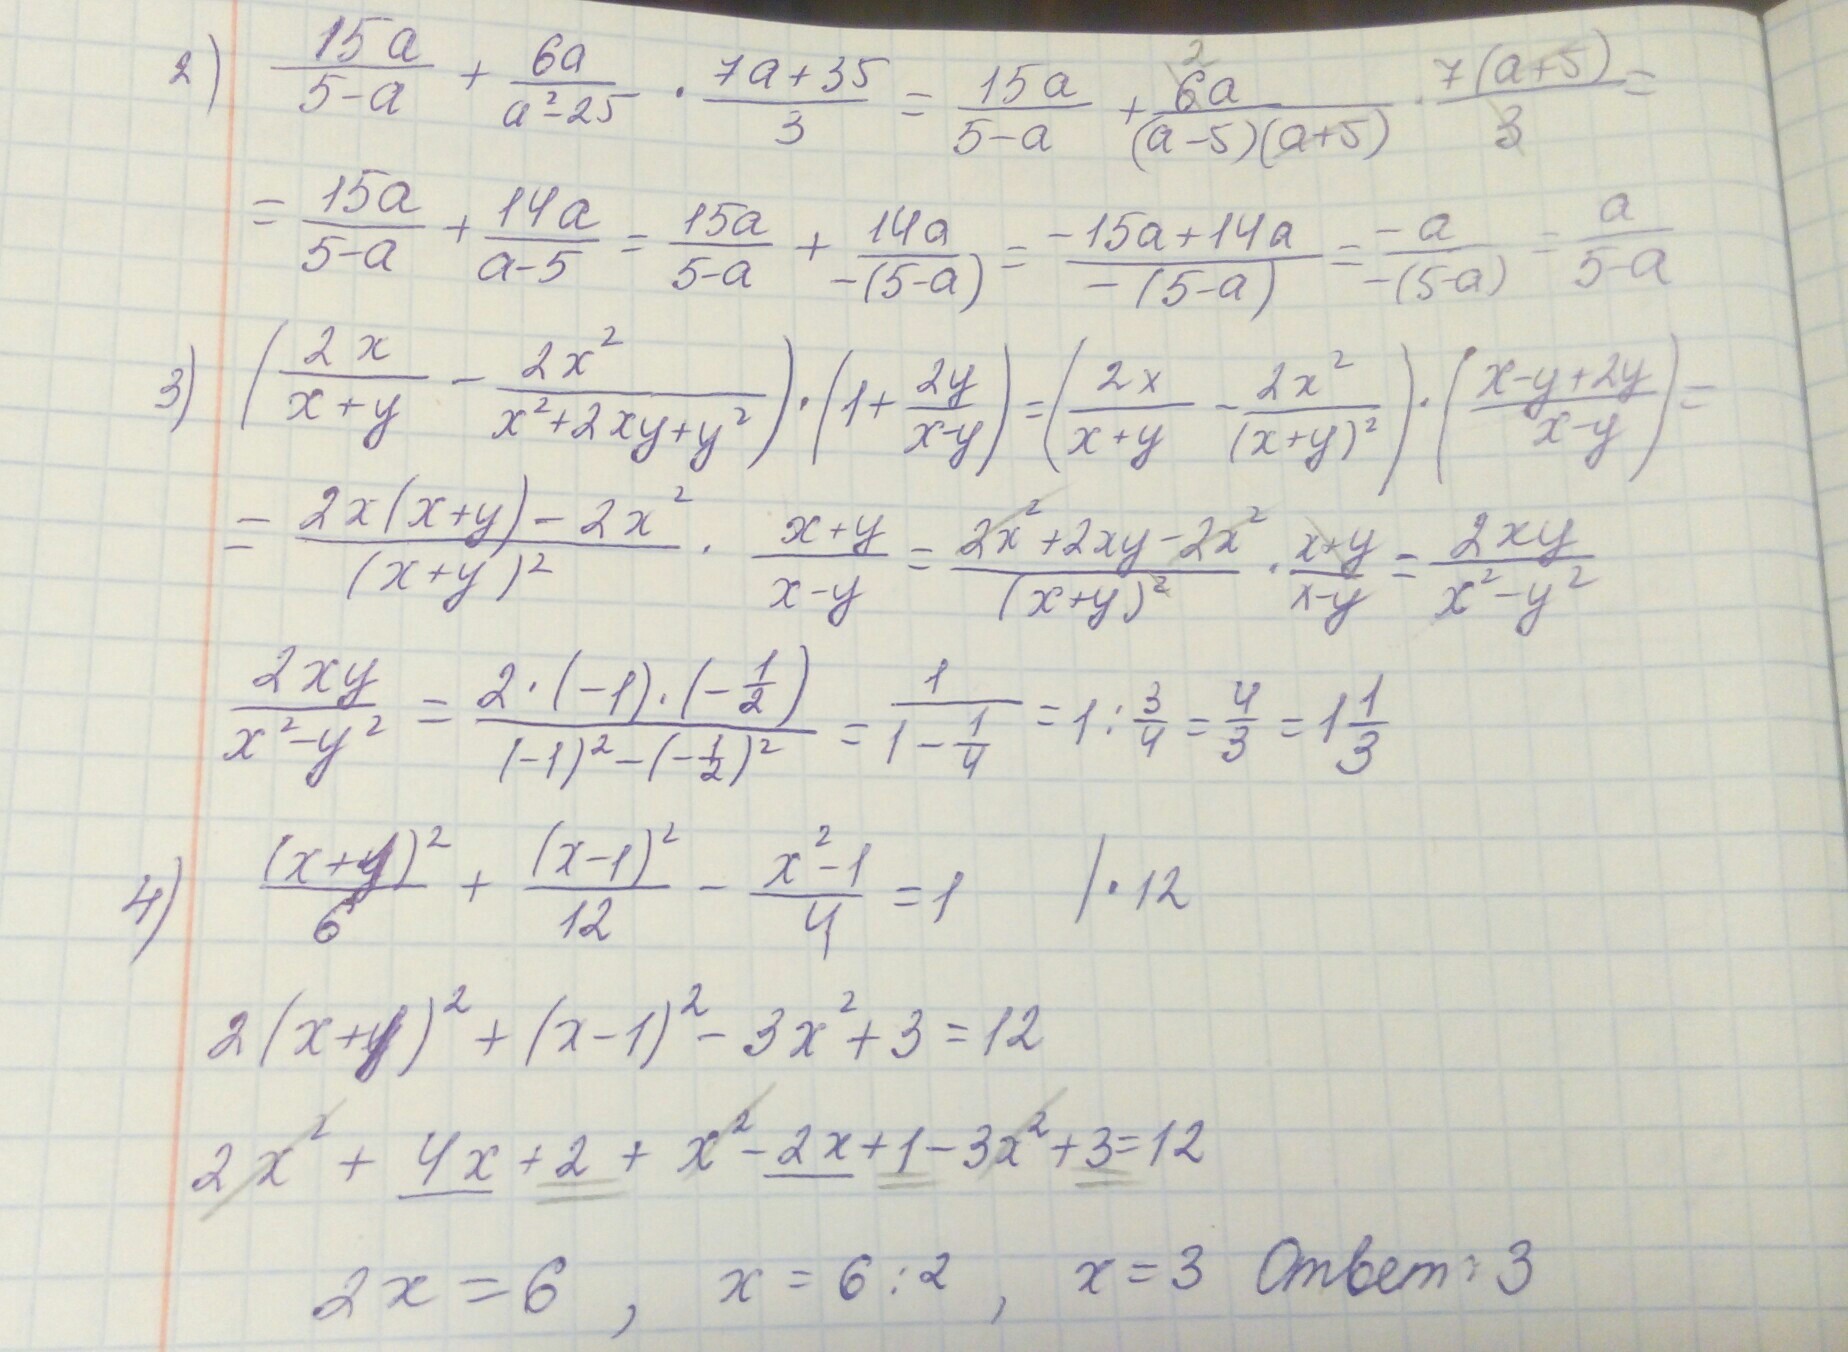 2) 15a/(5-a) + 6a/(a²-25) · (7a+35)/3 = 15a/(5-a) + 6a/((a-5)(a+5)) · 7(a+5)/3 =
2
= 15a/(5-a) + 14a/(a-5) = 15a/(5-a) + 14a/(-(5-a)) = (-15a+14a)/(-(5-a)) = -a/(-(5-a)) = a/(5-a)
3) (2x/(x+y) - 2x²/(x²+2xy+y²)) · (1 + 2y/(x-y)) = (2x/(x+y) - 2x²/(x+y)²) · ((x-y+2y)/(x-y)) =
= (2x(x+y) - 2x²)/(x+y)² · (x+y)/(x-y) = (2x²+2xy-2x²)/(x+y)² · (x+y)/(x-y) = 2xy/(x²-y²)
2xy/(x²-y²) = (2·(-1)·(-1/2))/((-1)²-(-1/2)²) = 1/(1-1/4) = 1 : 3/4 = 4/3 = 1 1/3
4) (x+1)²/6 + (x-1)²/12 - (x²-1)/4 = 1 |·12
2(x+1)² + (x-1)² - 3x² + 3 = 12
2x² + 4x + 2 + x² - 2x + 1 - 3x² + 3 = 12
2x = 6 , x = 6 : 2 , x = 3 Ответ: 3